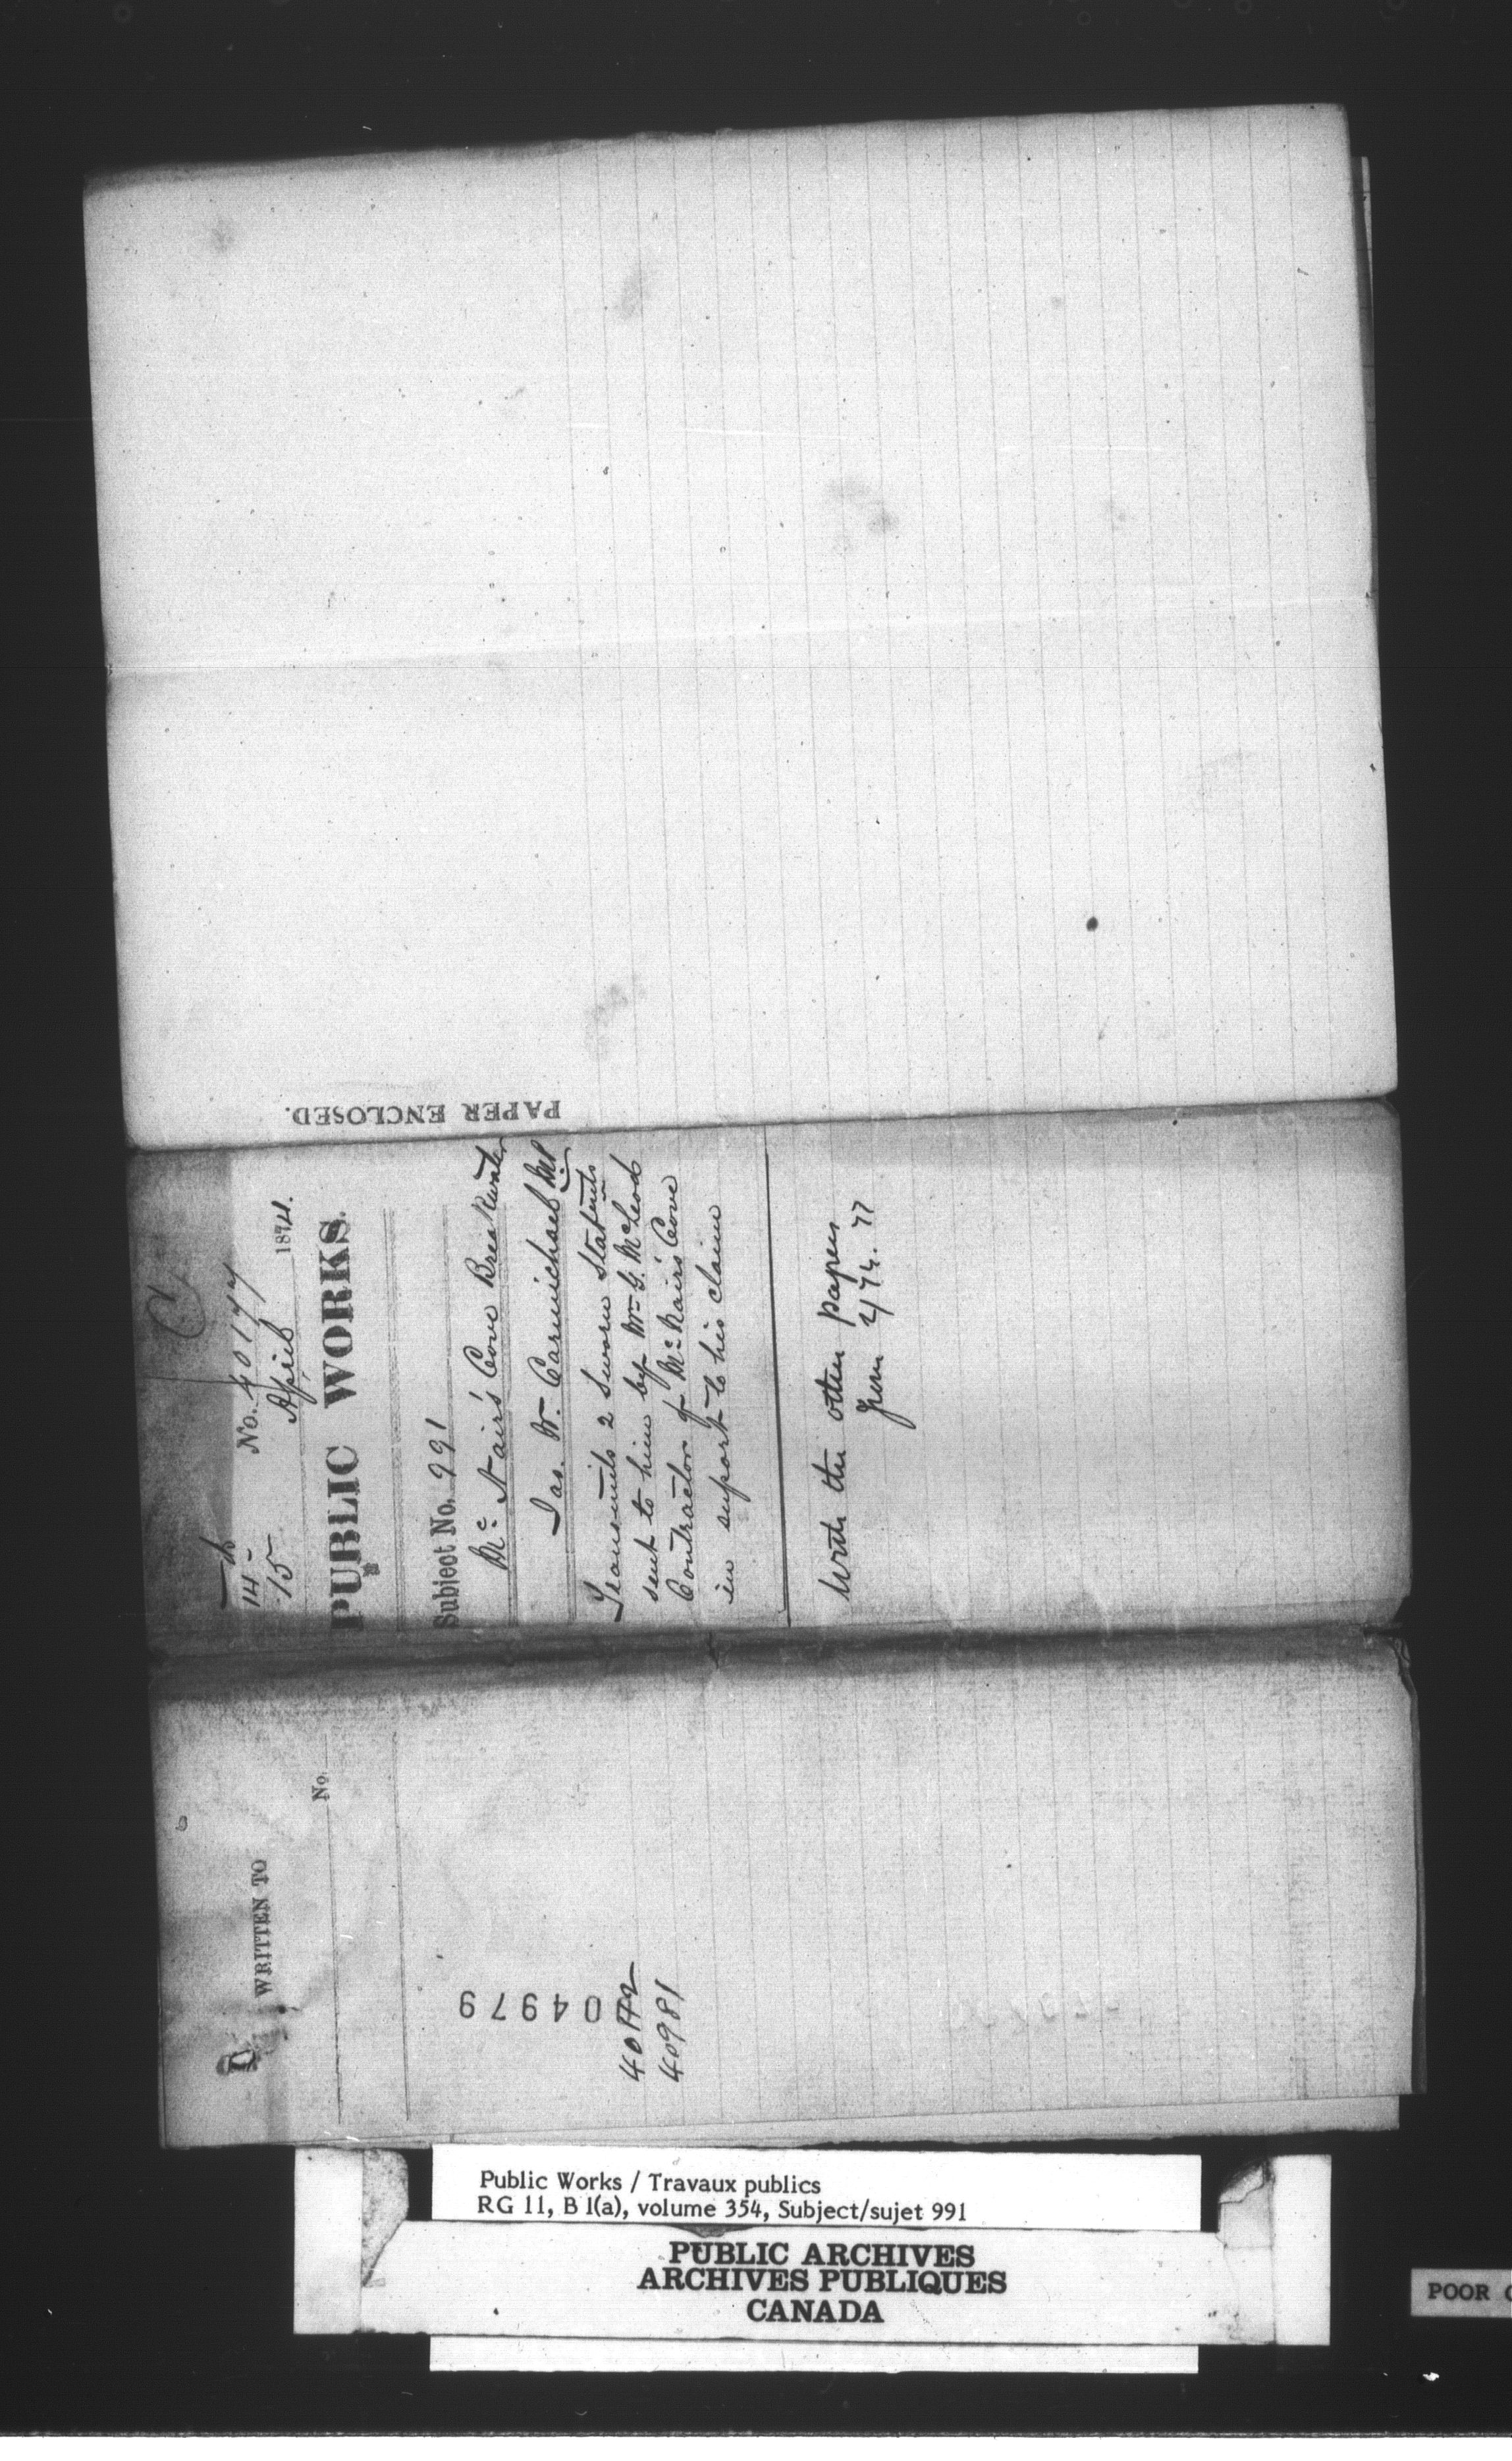 PAPER ENCLOSED.
14th No. 40177
15 April 1874.
PUBLIC WORKS.
Subject No. 991
Mc Nair's Cove Breakwater
Jas. W. Carmichael MP
Transmits 2 Sworn Statmts
sent to him by Wm G. McLeod
Contractor of McNair's Cove
in support to his claim
With the other papers
WRITTEN TO
No.
04979
40981
Public Works / Travaux publics
RG 11, B 1(a), volume 354, Subject/sujet 991
PUBLIC ARCHIVES
ARCHIVES PUBLIQUES
CANADA
POOR